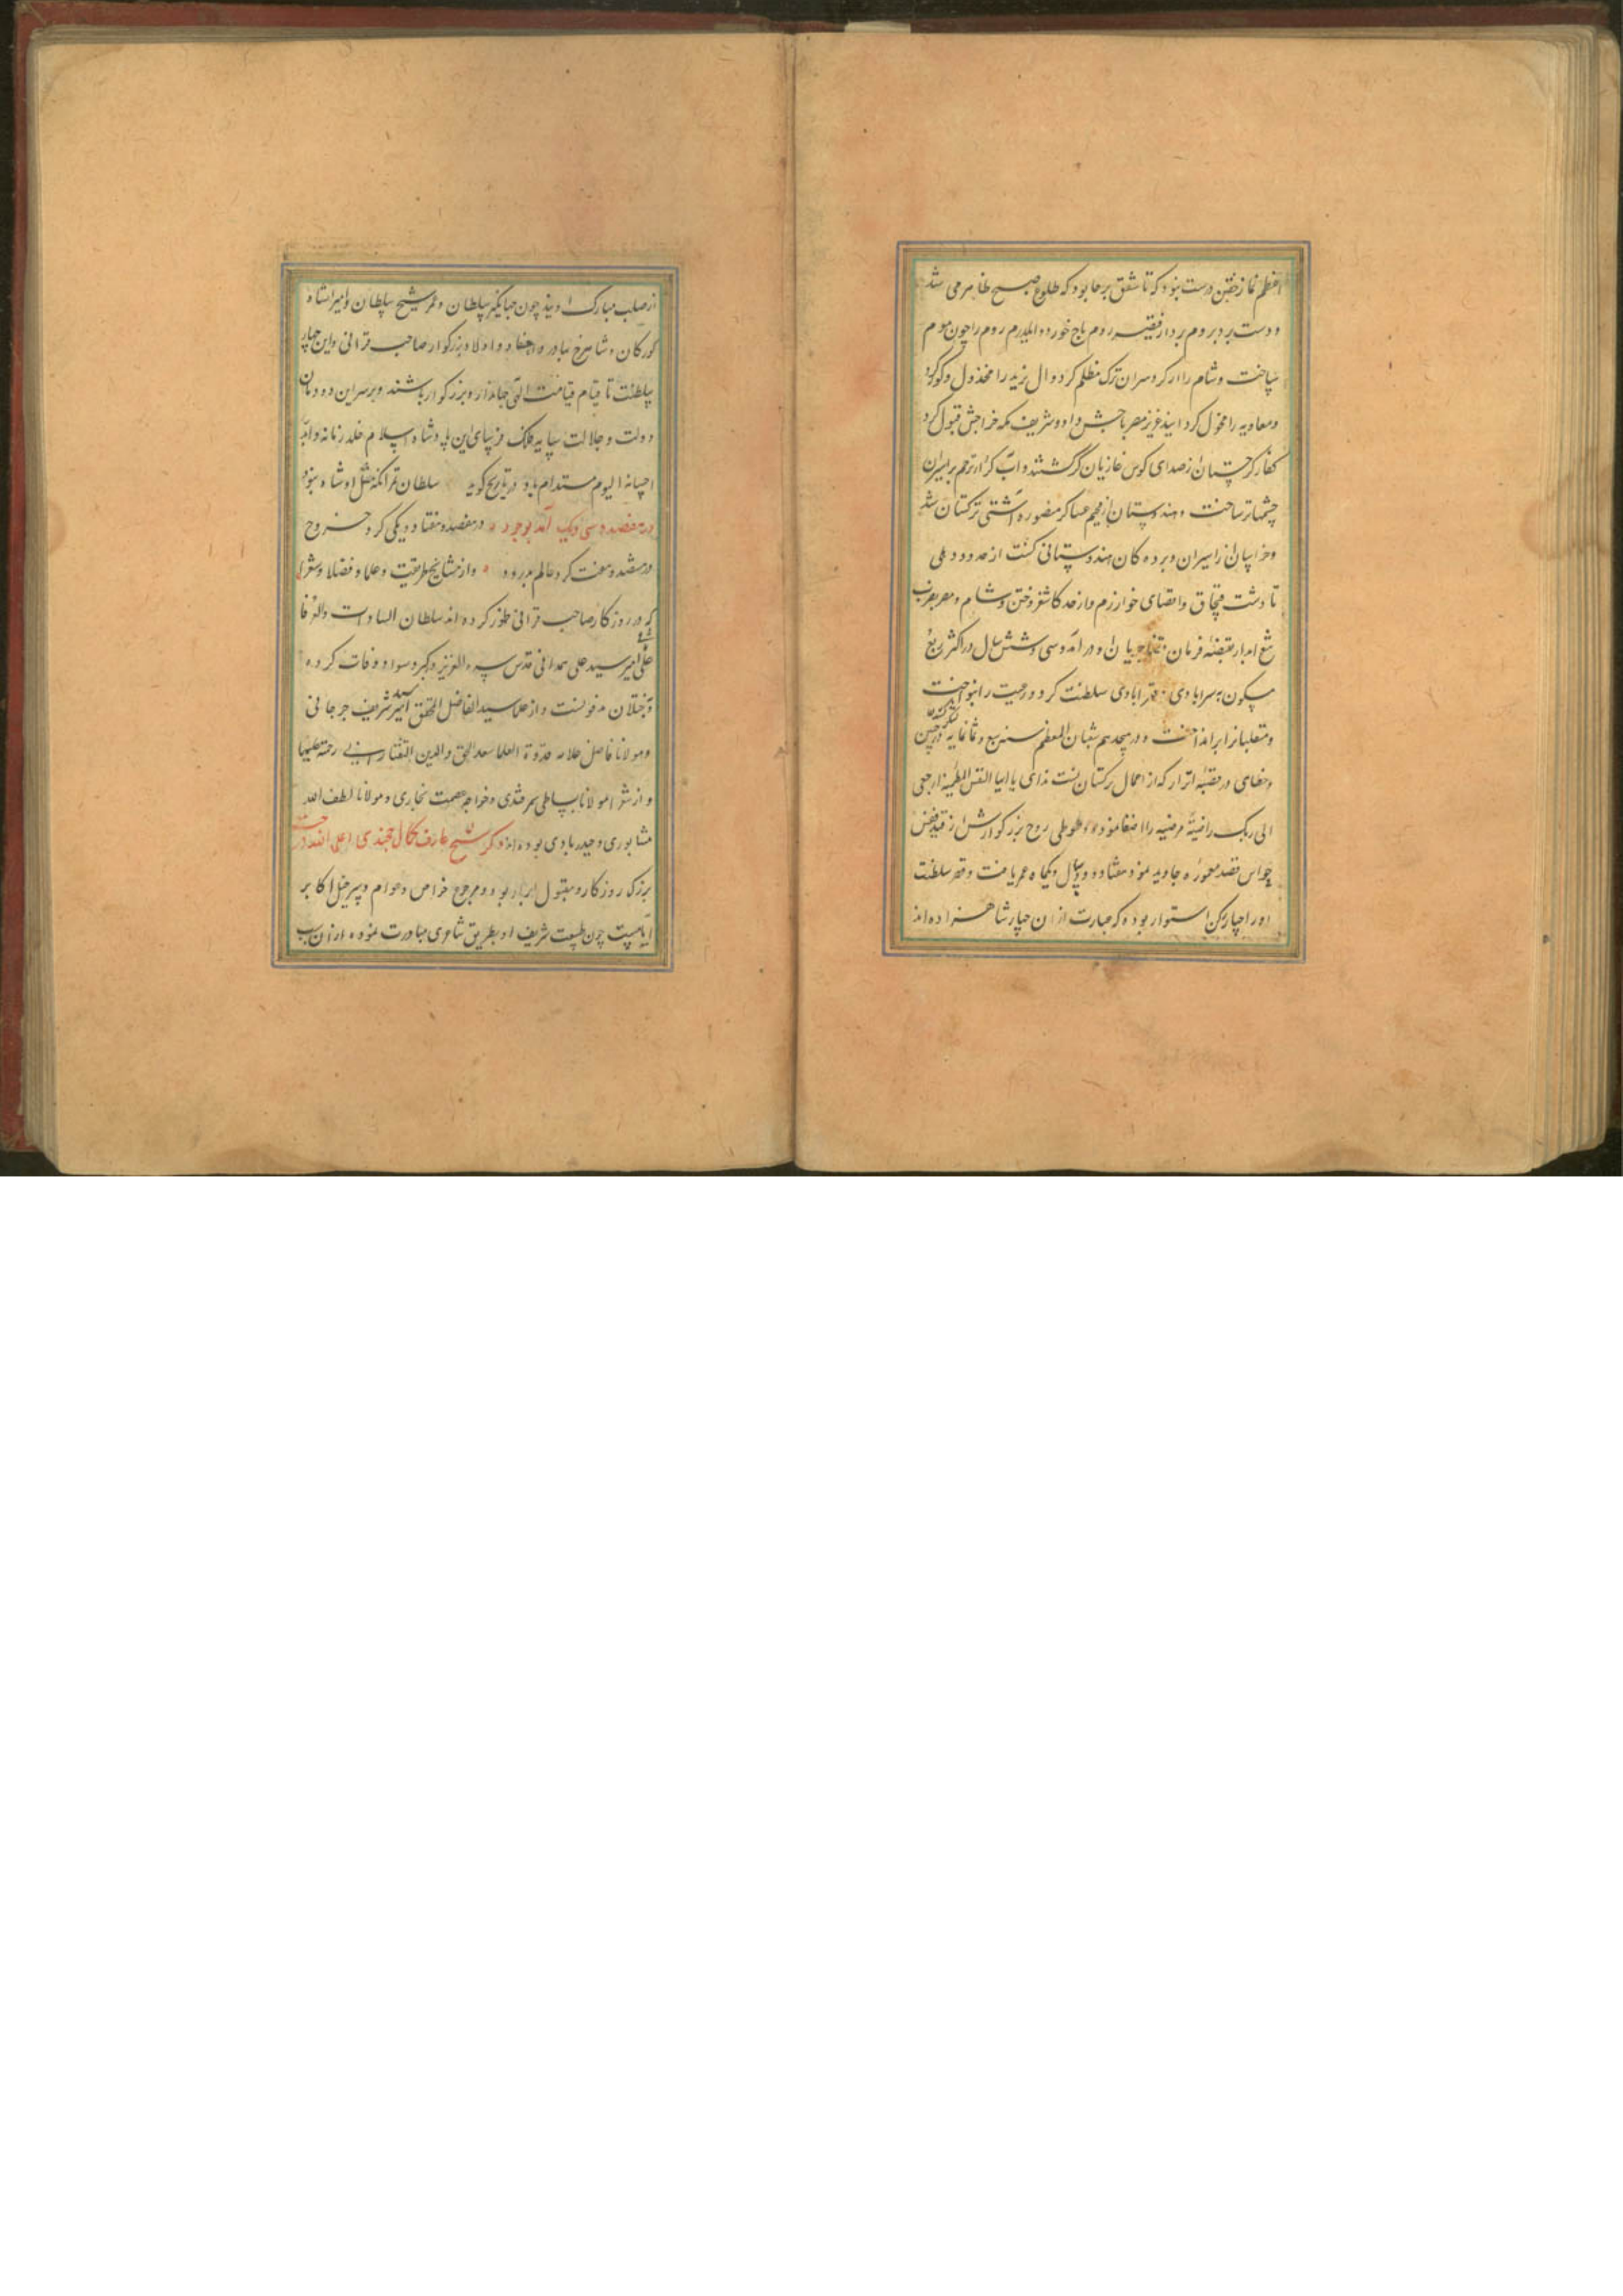 اعظم نماز خفتن درست نبود که تا شفق برجا بود که طلوع صبح ظاهر می شد
و دست برد بروم برد از قیصر روم باج خورد و ایلدرم روم را چون موم
ساخت و شام را از کرد سران ترک مظلم کرد و ال یزید را مخذول و کور کرد
و معاویه را مخول کردانید عزیز مصر باجش داد و شریف مکه خراجش قبول کرد
کفار کرجستان از صدای کوس غازیان کر کشتند و اب کر از ترحم بر اسیران
چشمها تر ساخت و هندوستان از هجم عساکر منصوره اشتی ترکستان شد
و خراسان از اسیران و برده کان هندوستانی کشت از حدود دهلی
تا دشت قبچاق و اقصای خوارزم و از حد کاشغر و ختن و شام و مصر بضرب
تیغ ابدار بقبضه فرمان او در امد و سی و شش سال در اکثر ربع
مسکون سلطنت کرد و رعیت را بنواخت
و متغلبانرا برانداخت و در هجدهم شعبان المعظم سنه سبع و ثمانمایه
در قصبه اترار که از اعمال ترکستان است ندای یا ایها النفس المطمئنه ارجعی
الی ربک راضیة مرضیه را اصغا نموده و طوطی روح بزرکوارش از قید قفس
حواس قصد معموره جاوید نمود هفتاد و دو سال و یکماه عمر یافت و قصر سلطنت
او را چهار رکن استوار بوده که عبارت از ان چهار شاهزاده اند
از صلب مبارک او نیز چون جهانکیر سلطان و عمر شیخ سلطان و امیرانشاه
کورکان و شاهرخ بهادر و احفاد و اولاد بزرکوار صاحب قرانی و این چهار
سلطنت تا قیام قیامت الهی جاندار و بزرکوار باشند و بر سر این دودمان
دولت و جلالت سایه فلک فرسای این پادشاه اسلام خلد زمانه و ابد
احسانه الیوم مستدام باد و تاریخ کوید سلطان تمر انکه مثل او شاه نبود
در هفصد و سی و یک آمد بوجود در هفصد و هفتاد و یکی کرد خروج
در هشصد و هفت کرد عالم بدرود و از مشایخ طریقت و علما و فضلا و شعرا
که در روزکار صاحب قرانی ظهور کرده اند سلطان السادات والعرفا
علی امیر سید علی همدانی قدس سره العزیز و بکبر و سواد وفات کرده
بختلان مدفونست و از علما سید الفاضل المحقق امیر سید شریف جرجانی
و مولانا فاضل علامه قدوة العلما سعد الحق والدین التفتازانی رحمة علیهما
و از شعرا مولانا بساطی سمرقندی و خواجه عصمت بخاری و مولانا لطف الله
نشابوری و حیدر بادی بوده اند ذکر شیخ عارف کمال خجندی اعلی الله درجته
بزرک روزکار و مقبول ابرار بود و مرجع خواص و عوام و سر خیل اکابر
ایامست چون طبیعت شریف او بطریق شاعری مبادرت نموده از ان سبب